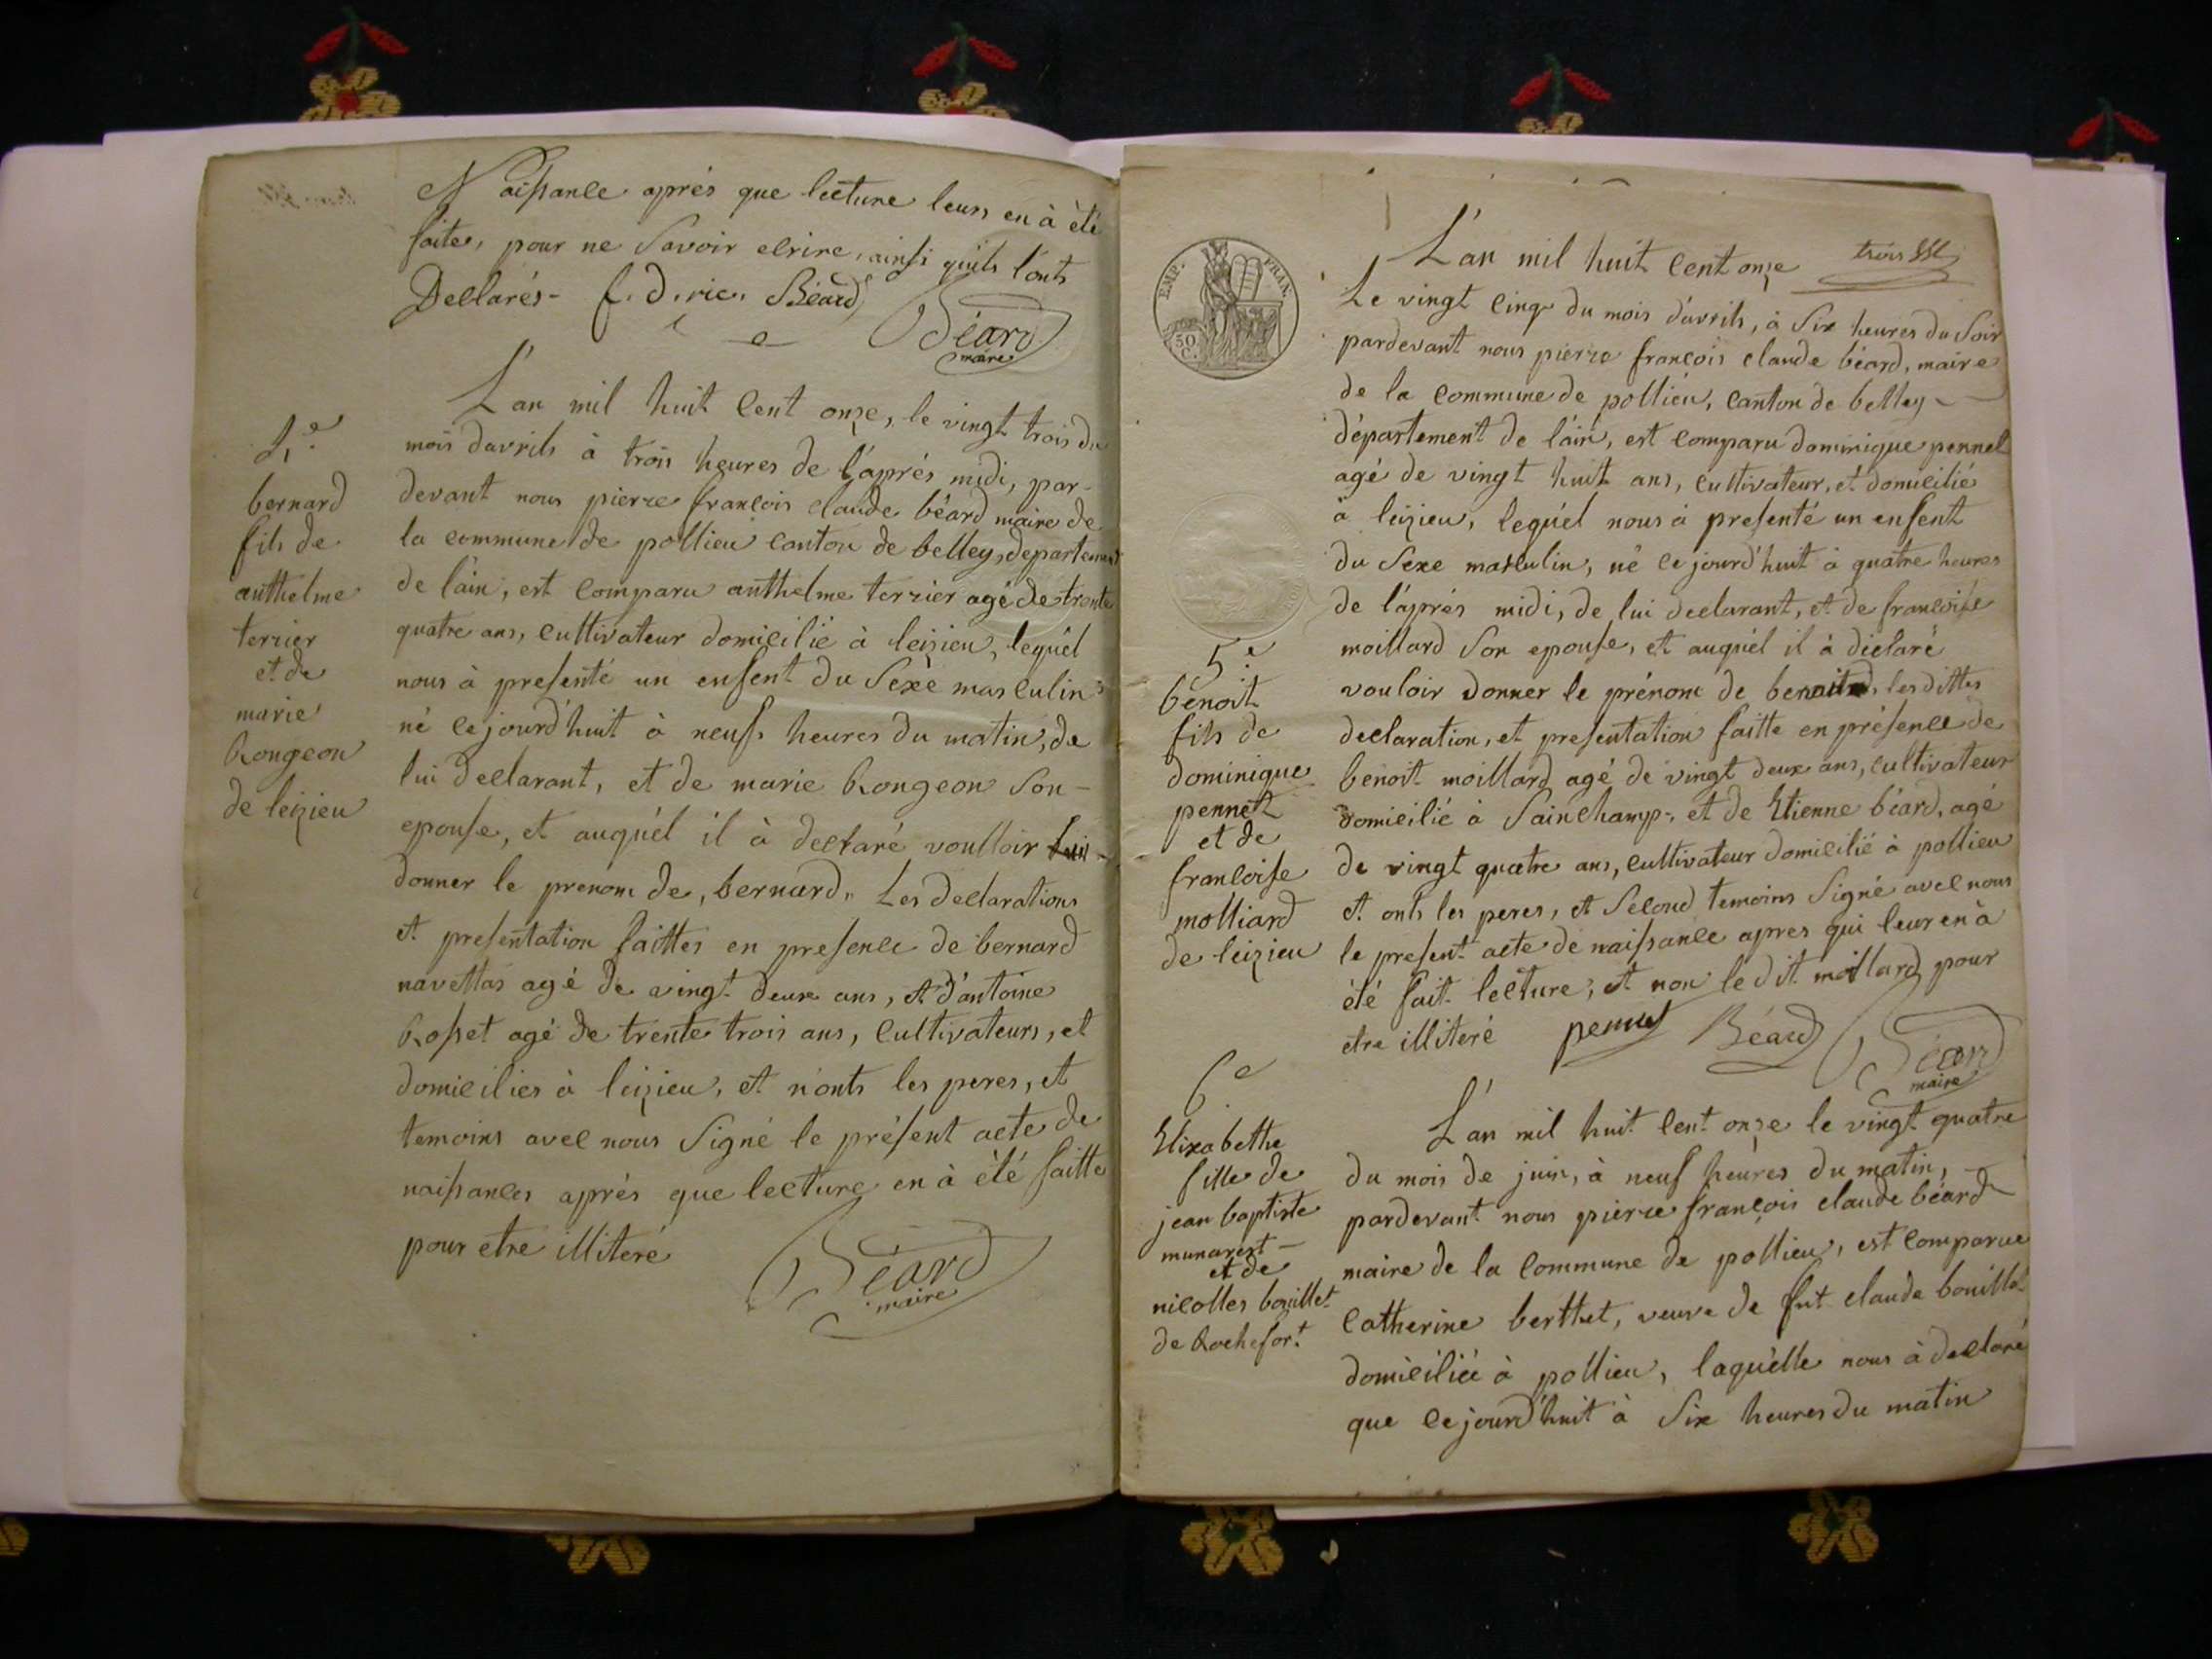 Naissance après que lecture leurs en à èté
faites, pour ne Savoir ecrire, ainsi quils l'onts
Declarés - f. d. ric. Béard
Béard
maire
4e
bernard
fils de
anthelme
terrier
et de
marie
Rongeon
de leizieu
L'an mil huit cent onze, le vingt trois du
mois davrils à trois heures de l'aprés midi, par-
devant nous pierre françois claude béard maire de
la commune de pollieu canton de belley, departement
de l'ain, est comparu anthelme terrier agé de trente
quatre ans, cultivateur domicilié à leizieu, lequel
nous à presenté un enfent du Sexe masculin
né cejourd'huit à neufs heures du matin, de
lui declarant, et de marie Rongeon Son-
epouse, et auquél il à declaré voulloir
donner le prenom de, bernard,, Les declarations
et presentation faittes en presence de bernard
navettas agé de vingt deux ans, et d'antoine
Rosset agé de trente trois ans, Cultivateurs, et
domicilies à leizieu, et n'onts les peres, et
temoins avec nous Signé le présent acte de
naissances aprés que lecture en à èté faitte
pour etre illiteré
Béard
maire
trois
EMP. FRAN.
50
C.
L'an mil huit cent onze
Le vingt cinq du mois d'avrils, à Six heures du Soir
pardevant nous pierre françois claude béard, maire
de la commune de pollieu, canton de belley -
département de l'ain, est comparu dominique pennet
agé de vingt huit ans, cultivateur, et domicilié
à leizieu, lequél nous à presenté un enfent
du Sexe masculin, né cejourd'huit à quatre heures
de l'aprés midi, de lui declarant, et de françoise
moillard Son epouse, et auquél il à déclaré
vouloir donner le prénom de benoit, les dittes
declaration, et presentation faitte en présence de
benoit moillard agé de vingt deux ans, cultivateur
domicilié à Sainchamp, et de Etienne béard, agé
de vingt quatre ans, cultivateur domicilié à pollieu
et onts les peres, et Second temoins Signé avec nous
le present acte de naissance apres qui leur en à
été fait lecture, et non le dit moillard pour
etre illiteré pennet Béard Béard
maire
5e
benoit
fils de
dominique
pennet
et de
francoise
molliard
de leizieu
6e
Elixabethe
fille de
jean baptiste
munarest -
et de
nicolles bouillet
de Rochefort
L'an mil huit cent onze le vingt quatre
du mois de juin, à neuf heures du matin,
pardevant nous pierre françois claude béard
maire de la commune de pollieu, est comparue
Catherine berthet, veuve de fut claude bouillet
domiciliée à pollieu, laquélle nous à declaré
que cejourd'huit à Six heures du matin